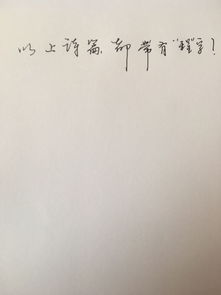 以上诗篇都带有“程”字!